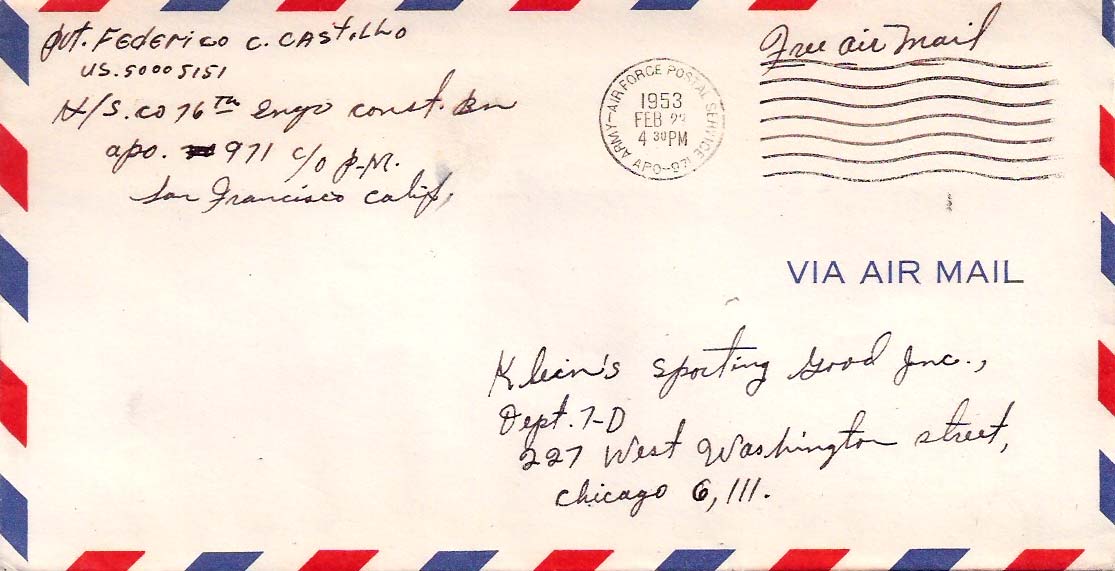 Pvt. FEDERICO C. CASTILLO
US. 50005151
H/S. co 76th Engr const. Bn
apo. 971 c/o P.M.
San Francisco Calif,
ARMY-AIR FORCE POSTAL SERVICE
1953
FEB
4 30 PM
APO-971
Free air Mail
VIA AIR MAIL
Klein's Sporting Good Inc.,
Dept. 7-D
227 West Washington street,
Chicago 6, Ill.